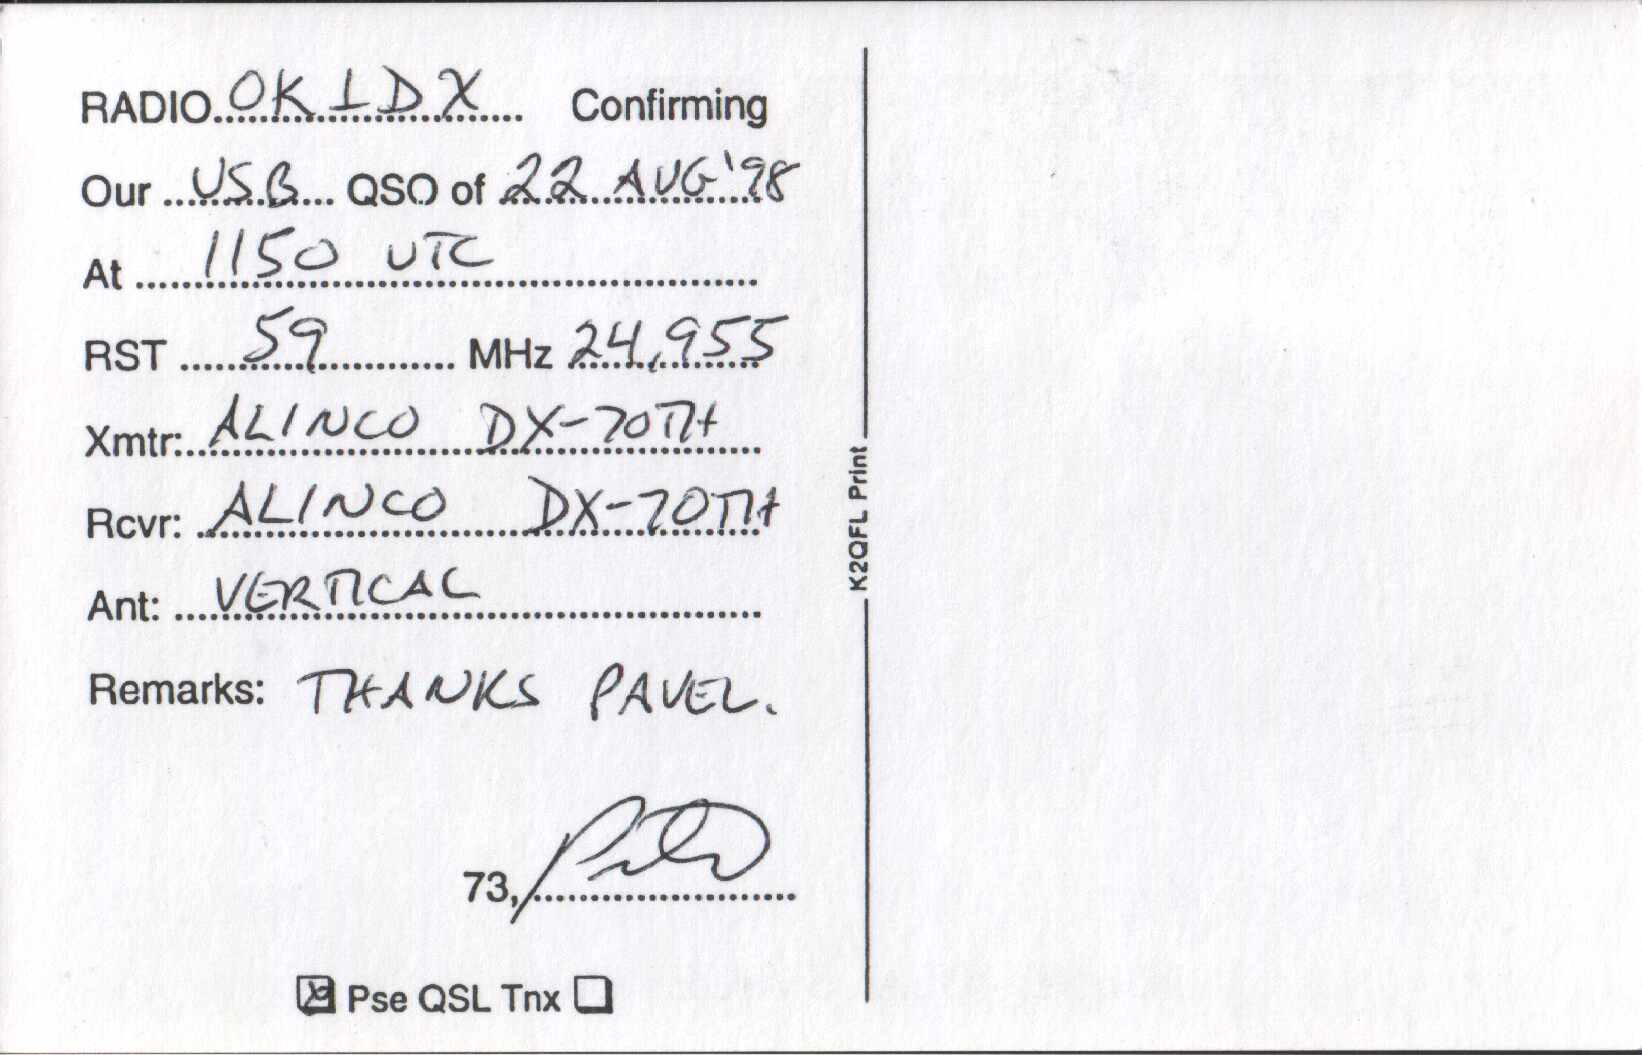 RADIO OK1DX Confirming
Our USB QSO of 22 AUG '98
At 1150 UTC
RST 59 MHz 24,955
Xmtr: ALINCO DX-70TH
Rcvr: ALINCO DX-70TH
Ant: VERTICAL
Remarks: THANKS PAVEL.
73,
Pse QSL Tnx
K2QFL Print